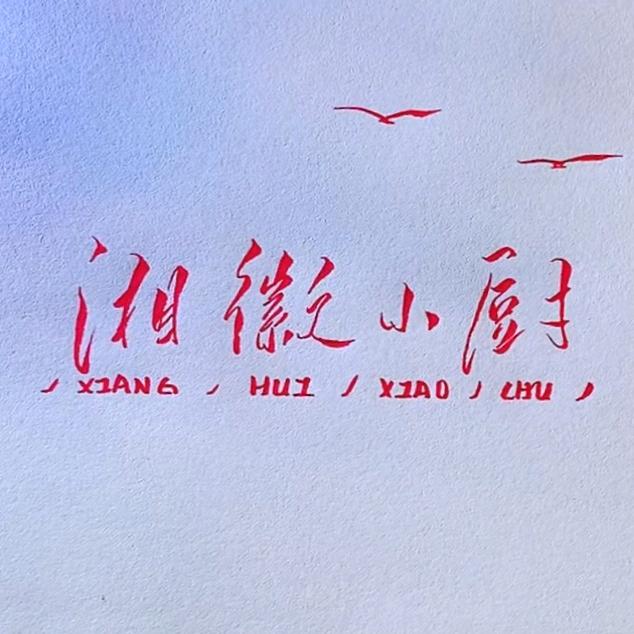 湘徽小厨
/ XIANG / HUI / XIAO / CHU /